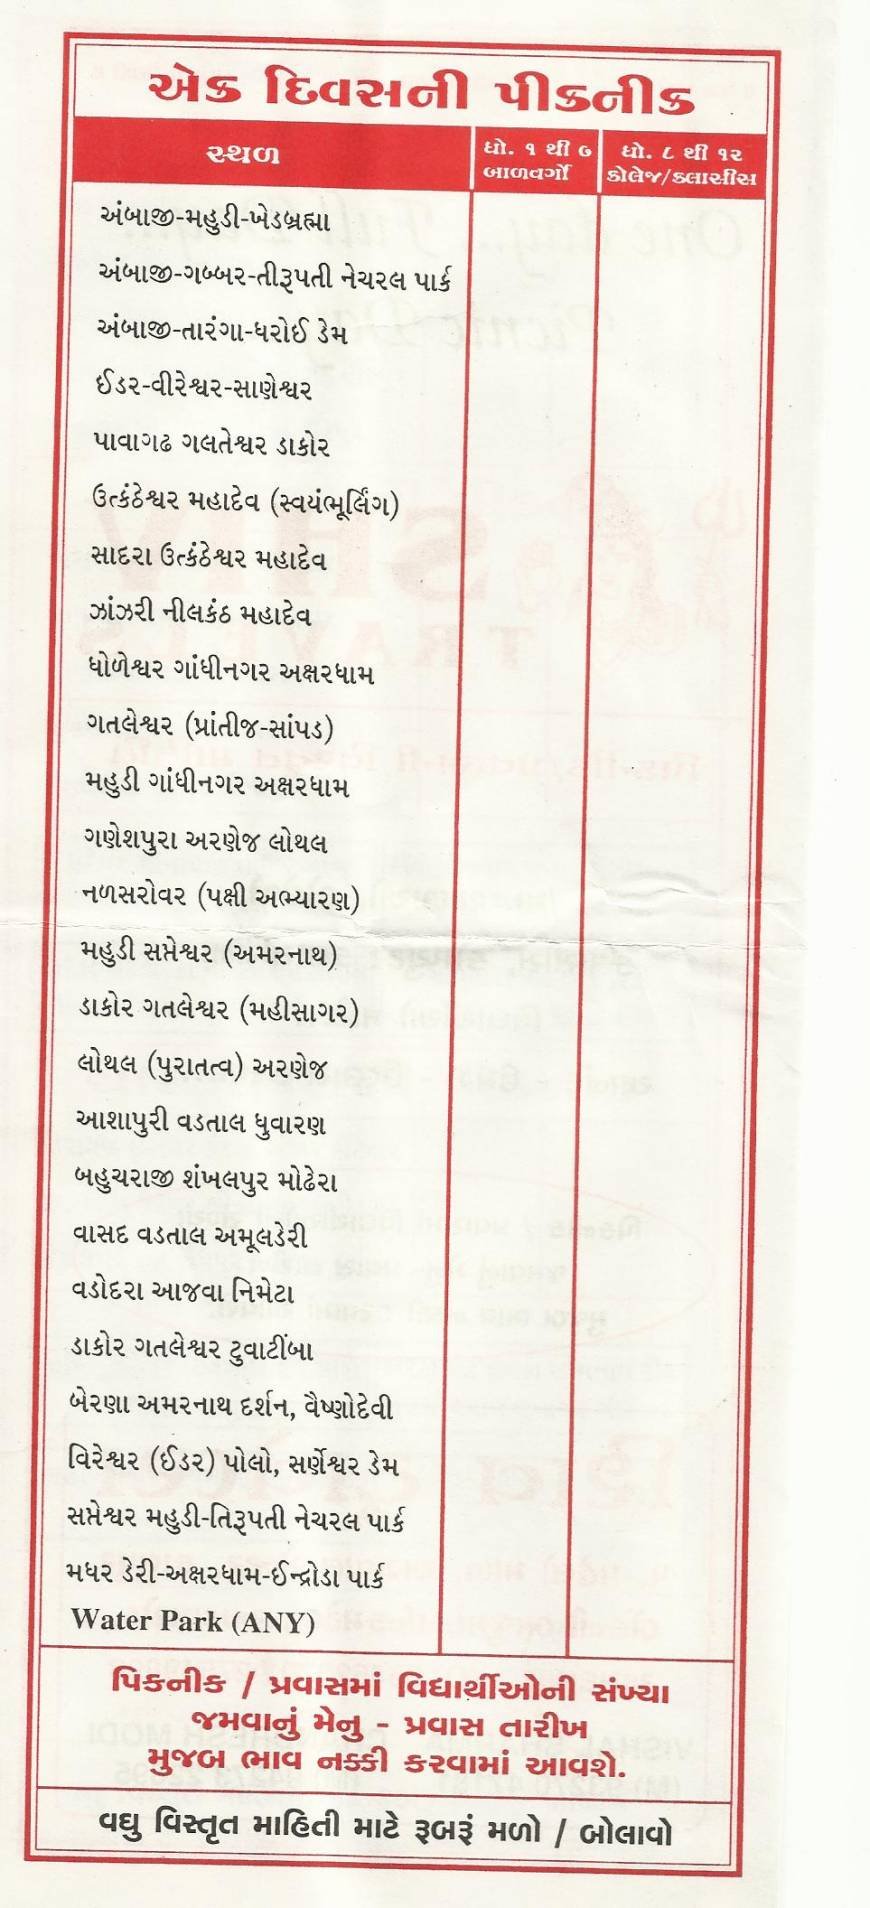 એક દિવસની પીકનીક
સ્થળ
ધો. ૧ થી ૭
બાળવર્ગો
ધો. ૮ થી ૧૨
કોલેજ/ક્લાસીસ
અંબાજી-મહુડી-ખેડબ્રહ્મા
અંબાજી-ગબ્બર-તીરૂપતી નેચરલ પાર્ક
અંબાજી-તારંગા-ધરોઈ ડેમ
ઈડર-વીરેશ્વર-સાણેશ્વર
પાવાગઢ ગલતેશ્વર ડાકોર
ઉત્કંઠેશ્વર મહાદેવ (સ્વયંભૂર્લિંગ)
સાદરા ઉત્કંઠેશ્વર મહાદેવ
ઝાંઝરી નીલકંઠ મહાદેવ
ધોળેશ્વર ગાંધીનગર અક્ષરધામ
ગતલેશ્વર (પ્રાંતીજ-સાંપડ)
મહુડી ગાંધીનગર અક્ષરધામ
ગણેશપુરા અરણેજ લોથલ
નળસરોવર (પક્ષી અભ્યારણ)
મહુડી સપ્તેશ્વર (અમરનાથ)
ડાકોર ગતલેશ્વર (મહીસાગર)
લોથલ (પુરાતત્વ) અરણેજ
આશાપુરી વડતાલ ધુવારણ
બહુચરાજી શંખલપુર મોઢેરા
વાસદ વડતાલ અમૂલડેરી
વડોદરા આજવા નિમેટા
ડાકોર ગતલેશ્વર ટુવાટીંબા
બેરણા અમરનાથ દર્શન, વૈષ્ણોદેવી
વિરેશ્વર (ઈડર) પોલો, સર્ણેશ્વર ડેમ
સપ્તેશ્વર મહુડી-તિરૂપતી નેચરલ પાર્ક
મધર ડેરી-અક્ષરધામ-ઈન્દ્રોડા પાર્ક
Water Park (ANY)
પિકનીક / પ્રવાસમાં વિદ્યાર્થીઓની સંખ્યા
જમવાનું મેનુ - પ્રવાસ તારીખ
મુજબ ભાવ નક્કી કરવામાં આવશે.
વધુ વિસ્તૃત માહિતી માટે રૂબરૂં મળો / બોલાવો